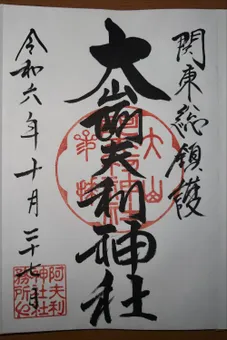 関東総鎮護
大山阿夫利神社
令和六年十月二十七日
大山
阿夫利
神社社
務所之